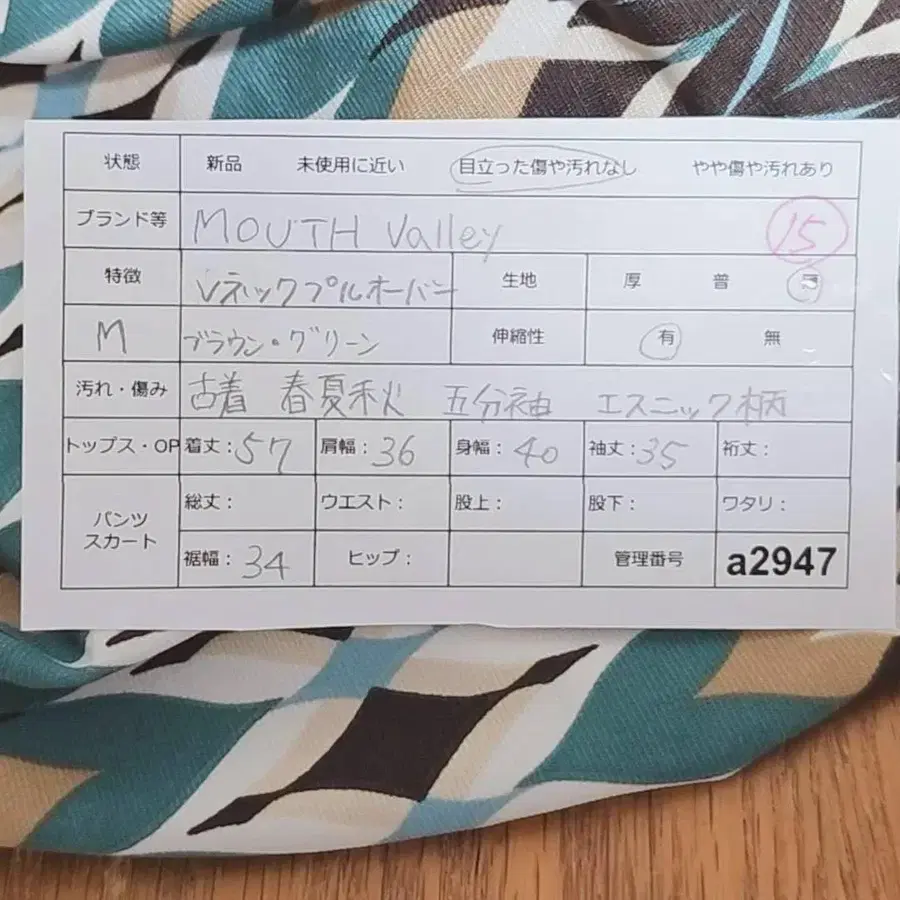 状態 新品 未使用に近い 目立った傷や汚れなし やや傷や汚れあり
ブランド等 MOUTH Valley 15
特徴 Vネックプルオーバー 生地 厚 普 薄
M ブラウン・グリーン 伸縮性 有 無
汚れ・傷み 古着 春夏秋 五分袖 エスニック柄
トップス・OP 着丈:57 肩幅:36 身幅:40 袖丈:35 裄丈:
パンツ スカート 総丈: ウエスト: 股上: 股下: ワタリ:
裾幅:34 ヒップ: 管理番号 a2947